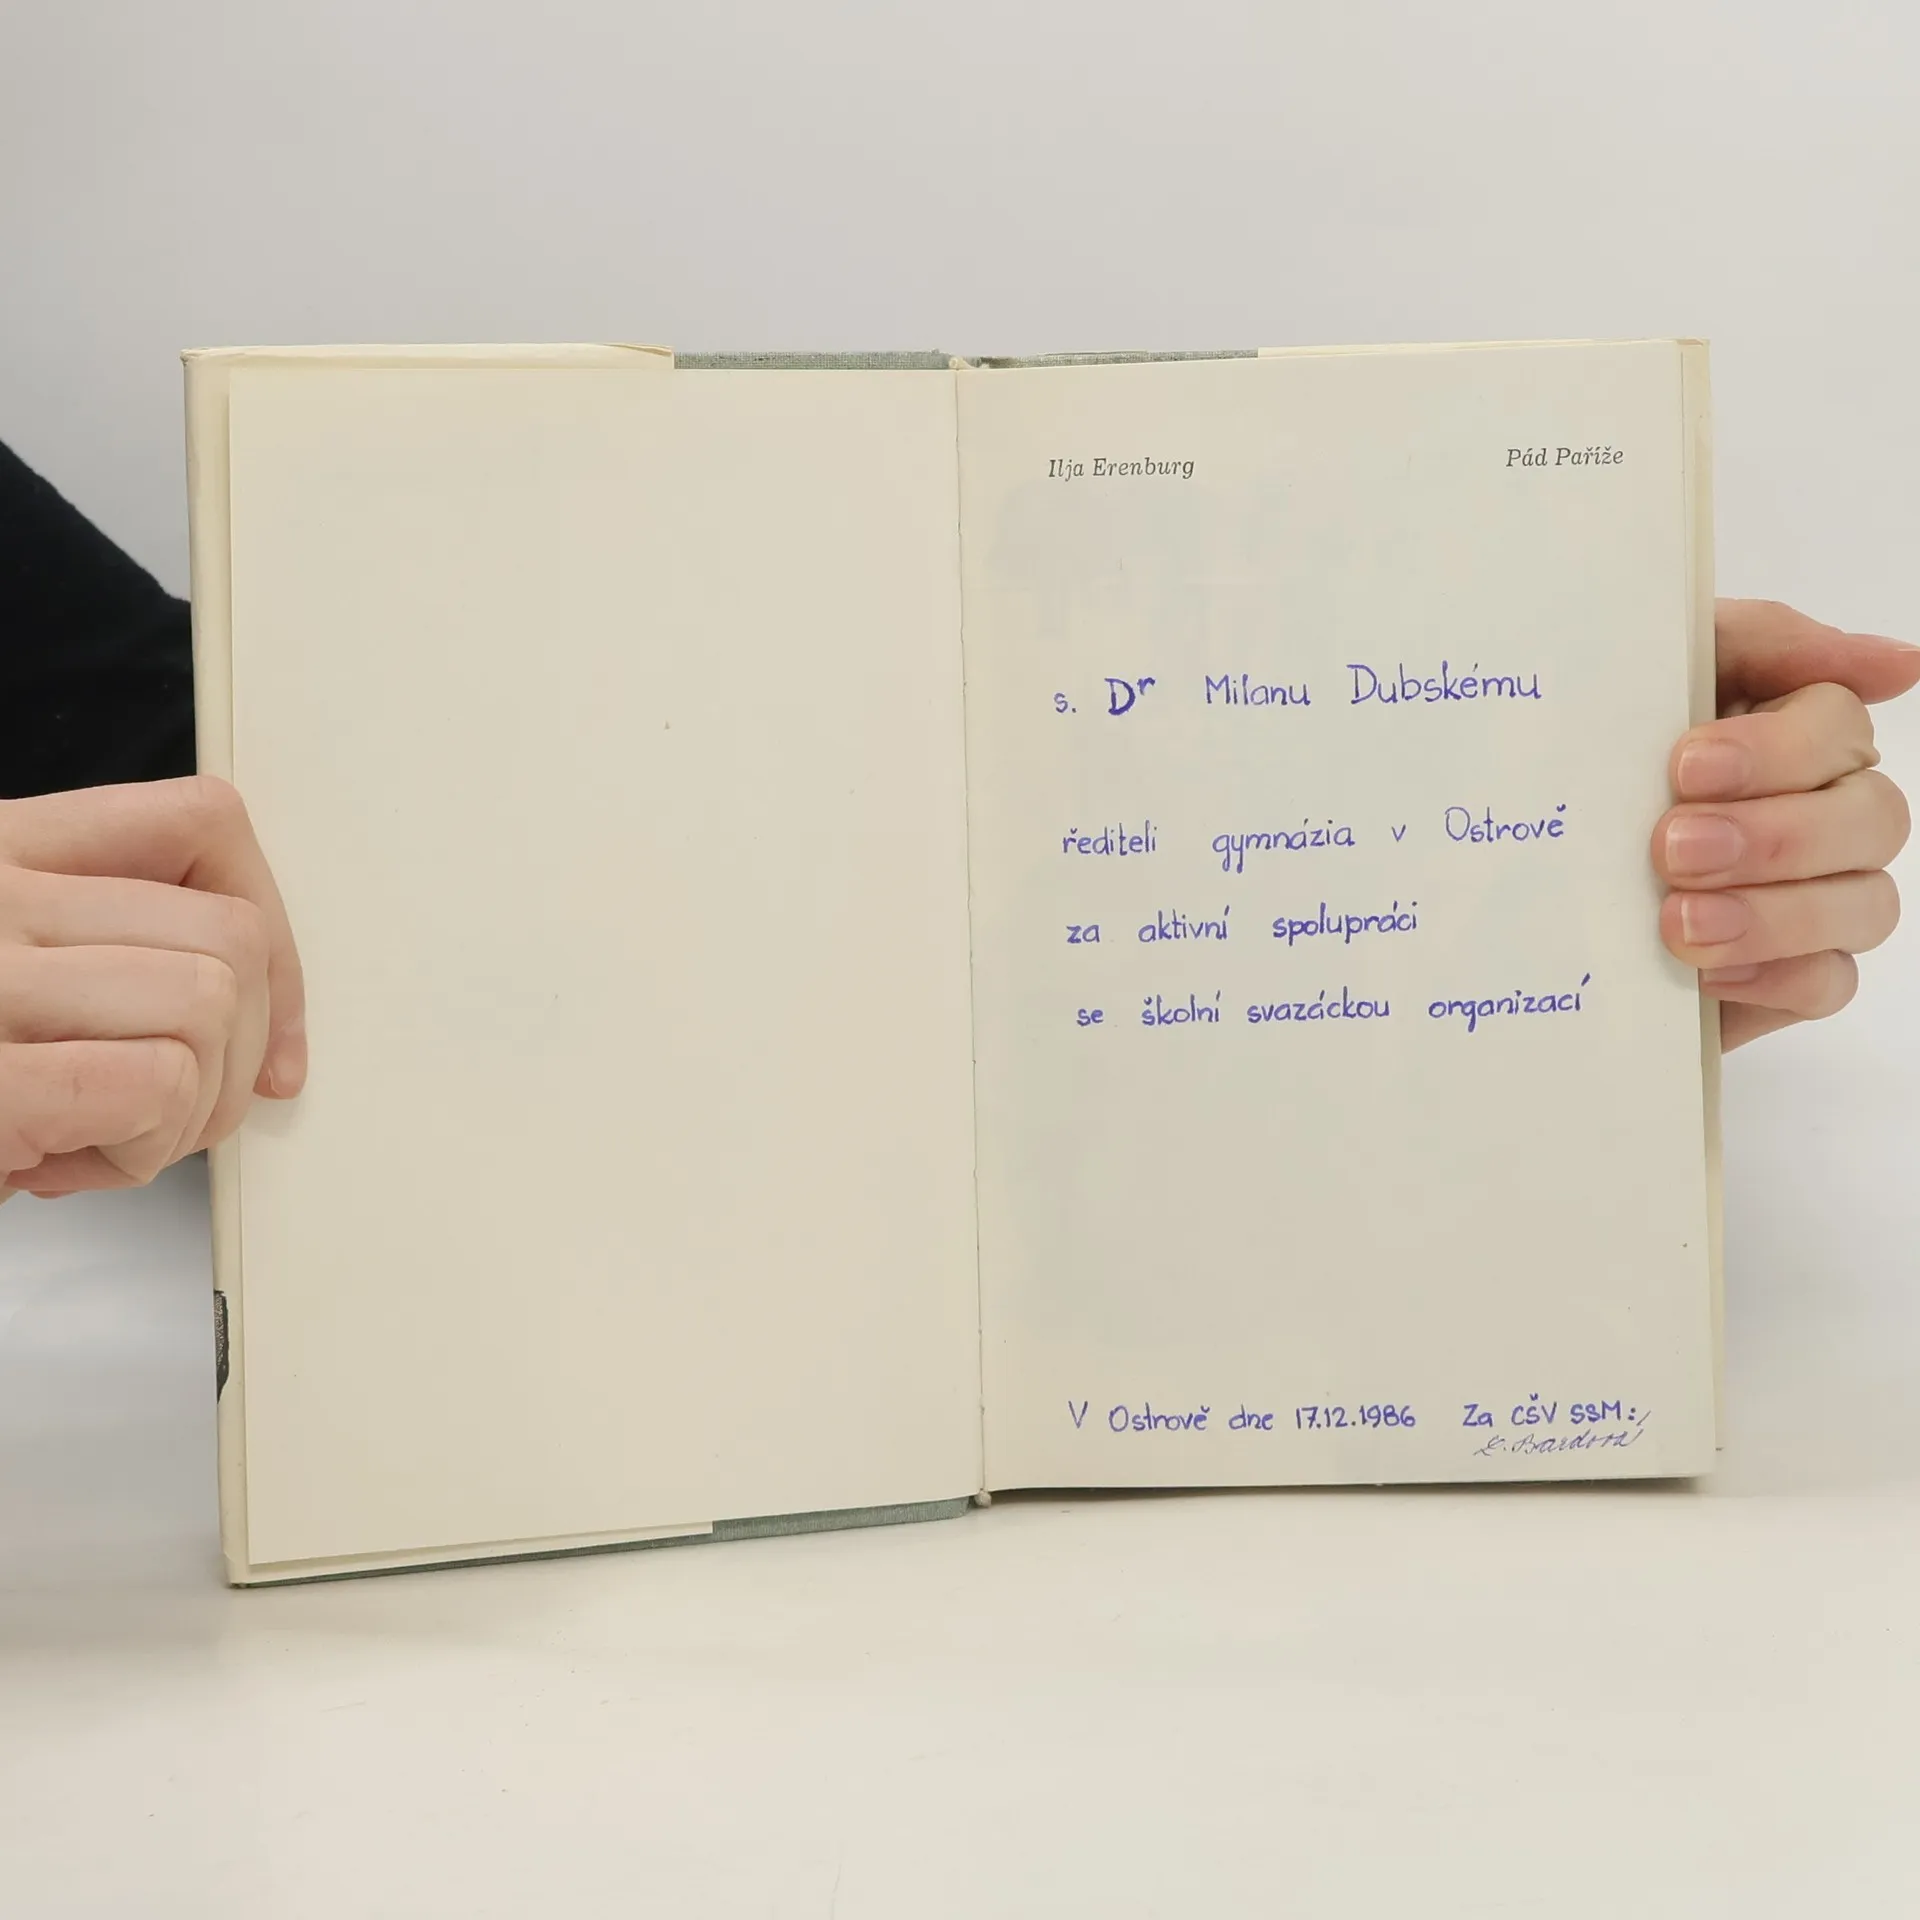 Ilja Erenburg Pád Paříže
s. Dr Milanu Dubskému
řediteli gymnázia v Ostrově
za aktivní spolupráci
se školní svazáckou organizací
V Ostrově dne 17.12.1986 Za CŠV SSM:
Bardová